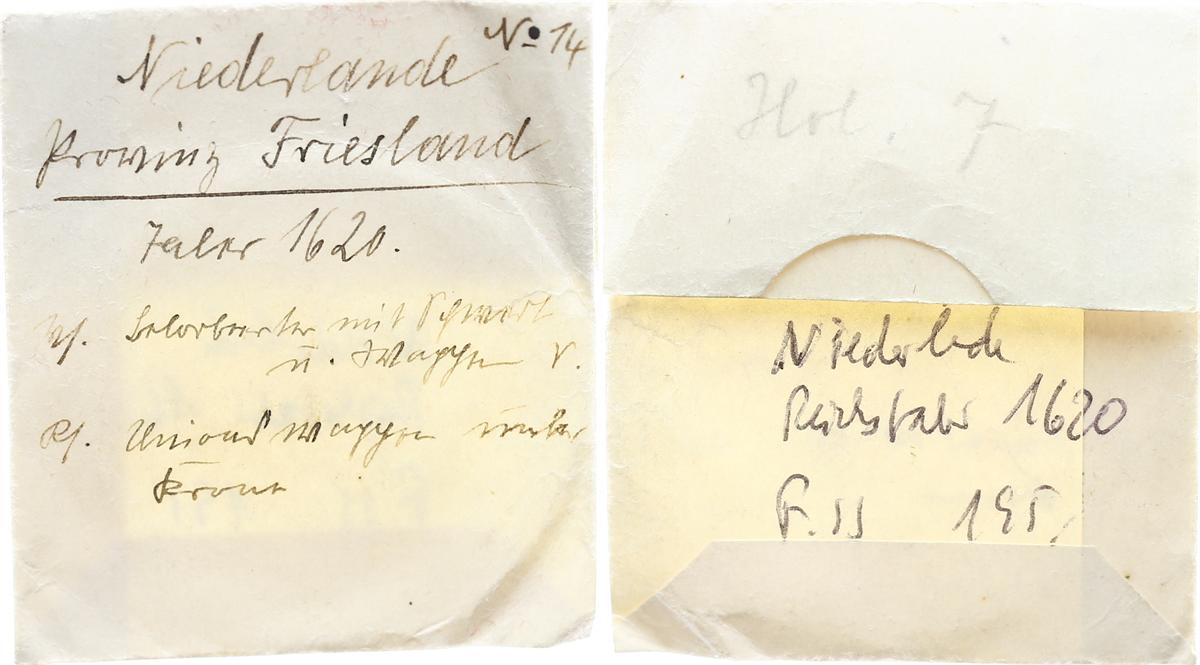 No 14
Niederlande
Provinz Friesland
Taler 1620.
mit Schwert
u. Wappen v.
Rs. Unionswappen unter
Krone
Hol. 7
Niederlade
Reichstaler 1620
F. ss 195,